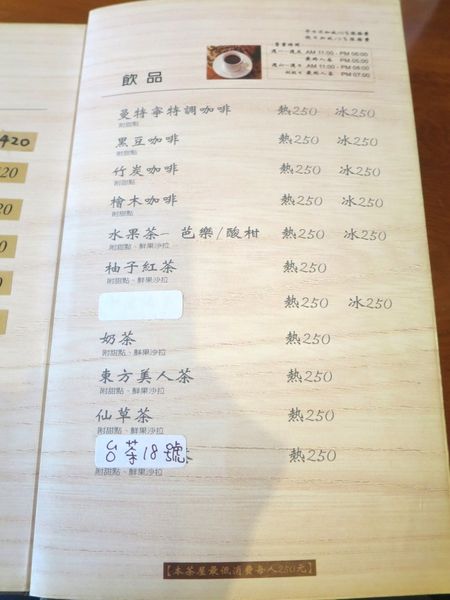 420
20
20
0
0
0
營業時間
週一~週五 AM 11:00 - PM 06:00
最晚入客 PM 05:00
週六~週日 AM 11:00 - PM 08:00
最晚入客 PM 07:00
飲品
曼特寧特調咖啡 熱250 冰250
附甜點
黑豆咖啡 熱250 冰250
附甜點
竹炭咖啡 熱250 冰250
附甜點
檜木咖啡 熱250 冰250
附甜點
水果茶- 芭樂/酸柑 熱250 冰250
附甜點、鮮果沙拉
柚子紅茶 熱250
附甜點、鮮果沙拉
熱250 冰250
奶茶 熱250
附甜點、鮮果沙拉
東方美人茶 熱250
附甜點、鮮果沙拉
仙草茶 熱250
附甜點、鮮果沙拉
台茶18號 熱250
附甜點、鮮果沙拉
【本茶屋最低消費每人250元】